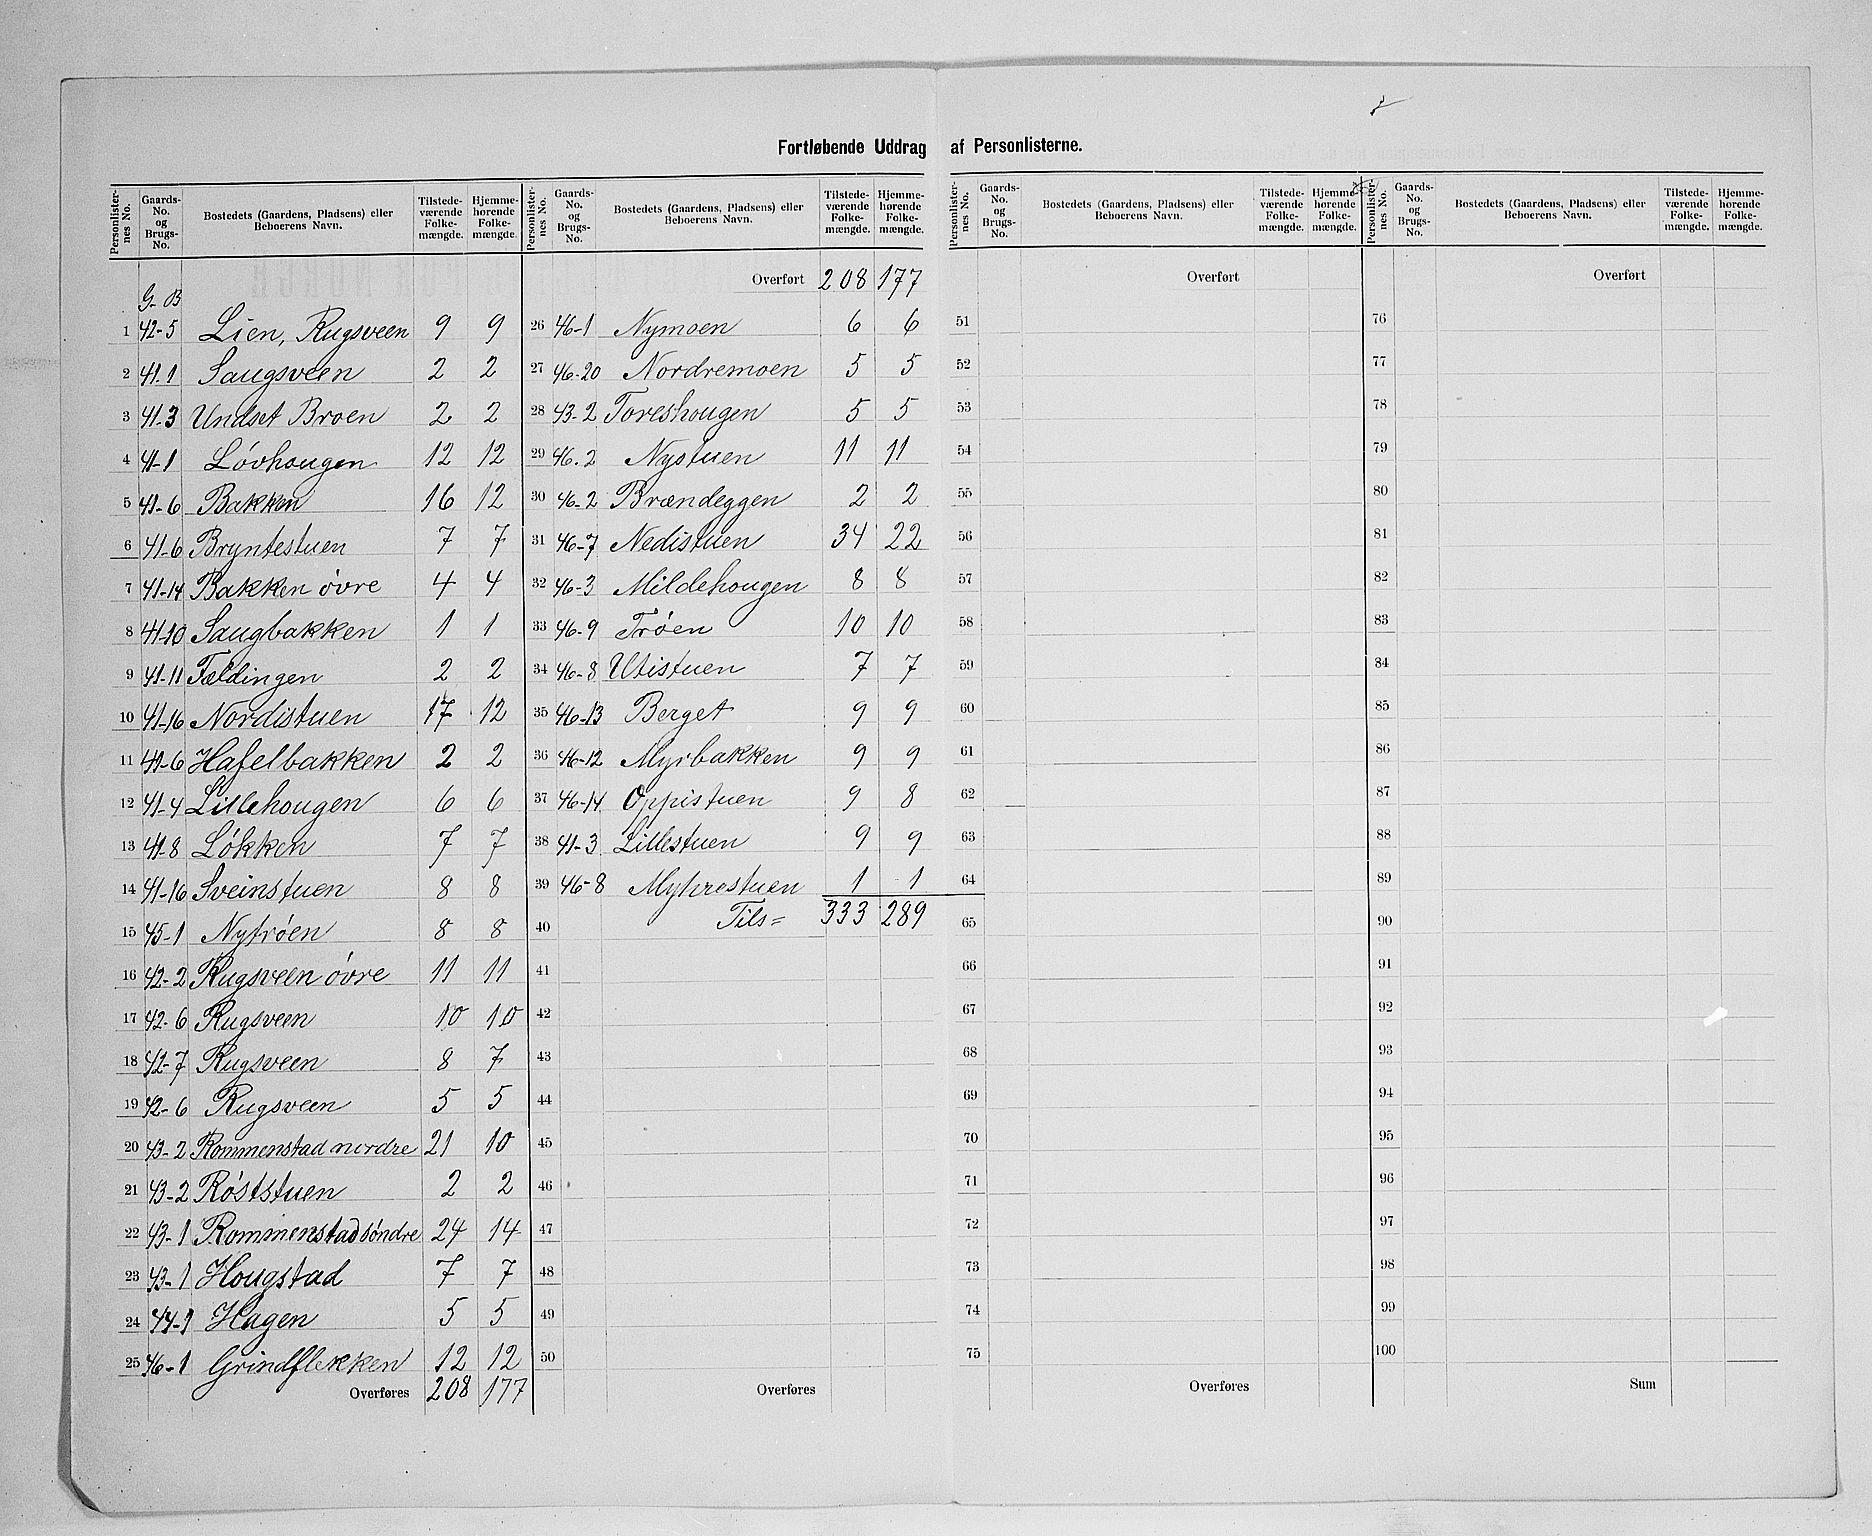 Fortløbende Uddrag af Personlisterne.
Personlister-nes No. Gaards-No. og Brugs-No. Bostedets (Gaardens, Pladsens) eller Beboerens Navn. Tilstede-værende Folke-mængde. Hjemme-hørende Folke-mængde.
G. B
1 42-5 Lien, Rugsveen 9 9
2 41.1 Saugsveen 2 2
3 41.3 Undset Broen 2 2
4 41-1 Løvhougen 12 12
5 41-6 Bakken 16 12
6 41-6 Bryntestuen 7 7
7 41-14 Bakken øvre 4 4
8 41-10 Saugbakken 1 1
9 41-11 Fældingen 2 2
10 41-16 Nordistuen 17 12
11 41-6 Hafelbakken 2 2
12 41-4 Lillehougen 6 6
13 41-8 Løkken 7 7
14 41-16 Sveinstuen 8 8
15 45-1 Nytrøen 8 8
16 42-2 Rugsveen øvre 11 11
17 42-6 Rugsveen 10 10
18 42-7 Rugsveen 8 7
19 42-6 Rugsveen 5 5
20 43-2 Rommenstad nordre 21 10
21 43-2 Røststuen 2 2
22 43-1 Rommenstad søndre 24 14
23 43-1 Hougstad 7 7
24 44-1 Hagen 5 5
25 46-1 Grindflekken 12 12
Overføres 208 177
Personlister-nes No. Gaards-No. og Brugs-No. Bostedets (Gaardens, Pladsens) eller Beboerens Navn. Tilstede-værende Folke-mængde. Hjemme-hørende Folke-mængde.
Overført 208 177
26 46-1 Nymoen 6 6
27 46-20 Nordremoen 5 5
28 43-2 Toreshougen 5 5
29 46.2 Nystuen 11 11
30 46-2 Brændeggen 2 2
31 46-7 Nedistuen 34 22
32 46-3 Mildehougen 8 8
33 46-9 Trøen 10 10
34 46-8 Utistuen 7 7
35 46-13 Berget 9 9
36 46-12 Myrbakken 9 9
37 46-14 Oppistuen 9 8
38 41-3 Lillestuen 9 9
39 46-8 Myhrestuen 1 1
40 Tils= 333 289
41
42
43
44
45
46
47
48
49
50
Overføres
Personlister-nes No. Gaards-No. og Brugs-No. Bostedets (Gaardens, Pladsens) eller Beboerens Navn. Tilstede-værende Folke-mængde. Hjemme-hørende Folke-mængde.
Overført
51
52
53
54
55
56
57
58
59
60
61
62
63
64
65
66
67
68
69
70
71
72
73
74
75
Overføres
Personlister-nes No. Gaards-No. og Brugs-No. Bostedets (Gaardens, Pladsens) eller Beboerens Navn. Tilstede-værende Folke-mængde. Hjemme-hørende Folke-mængde.
Overført
76
77
78
79
80
81
82
83
84
85
86
87
88
89
90
91
92
93
94
95
96
97
98
99
100
Sum